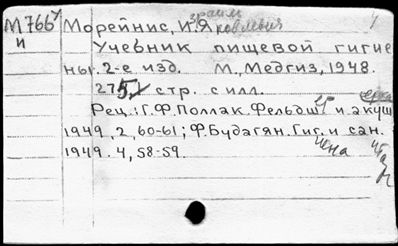 М766У Морейнис, И.зраиль Яковлевич
и Учебник пищевой гигие
ны. 2-е изд. М., Медгиз, 1948.
275, стр. с илл.
Рец.: Г.Ф. Поллак. Фельдш и акуш
1949, 2, 60-61; Ф. Будагян. Гиг. и сан.
1949. 4, 58-59.